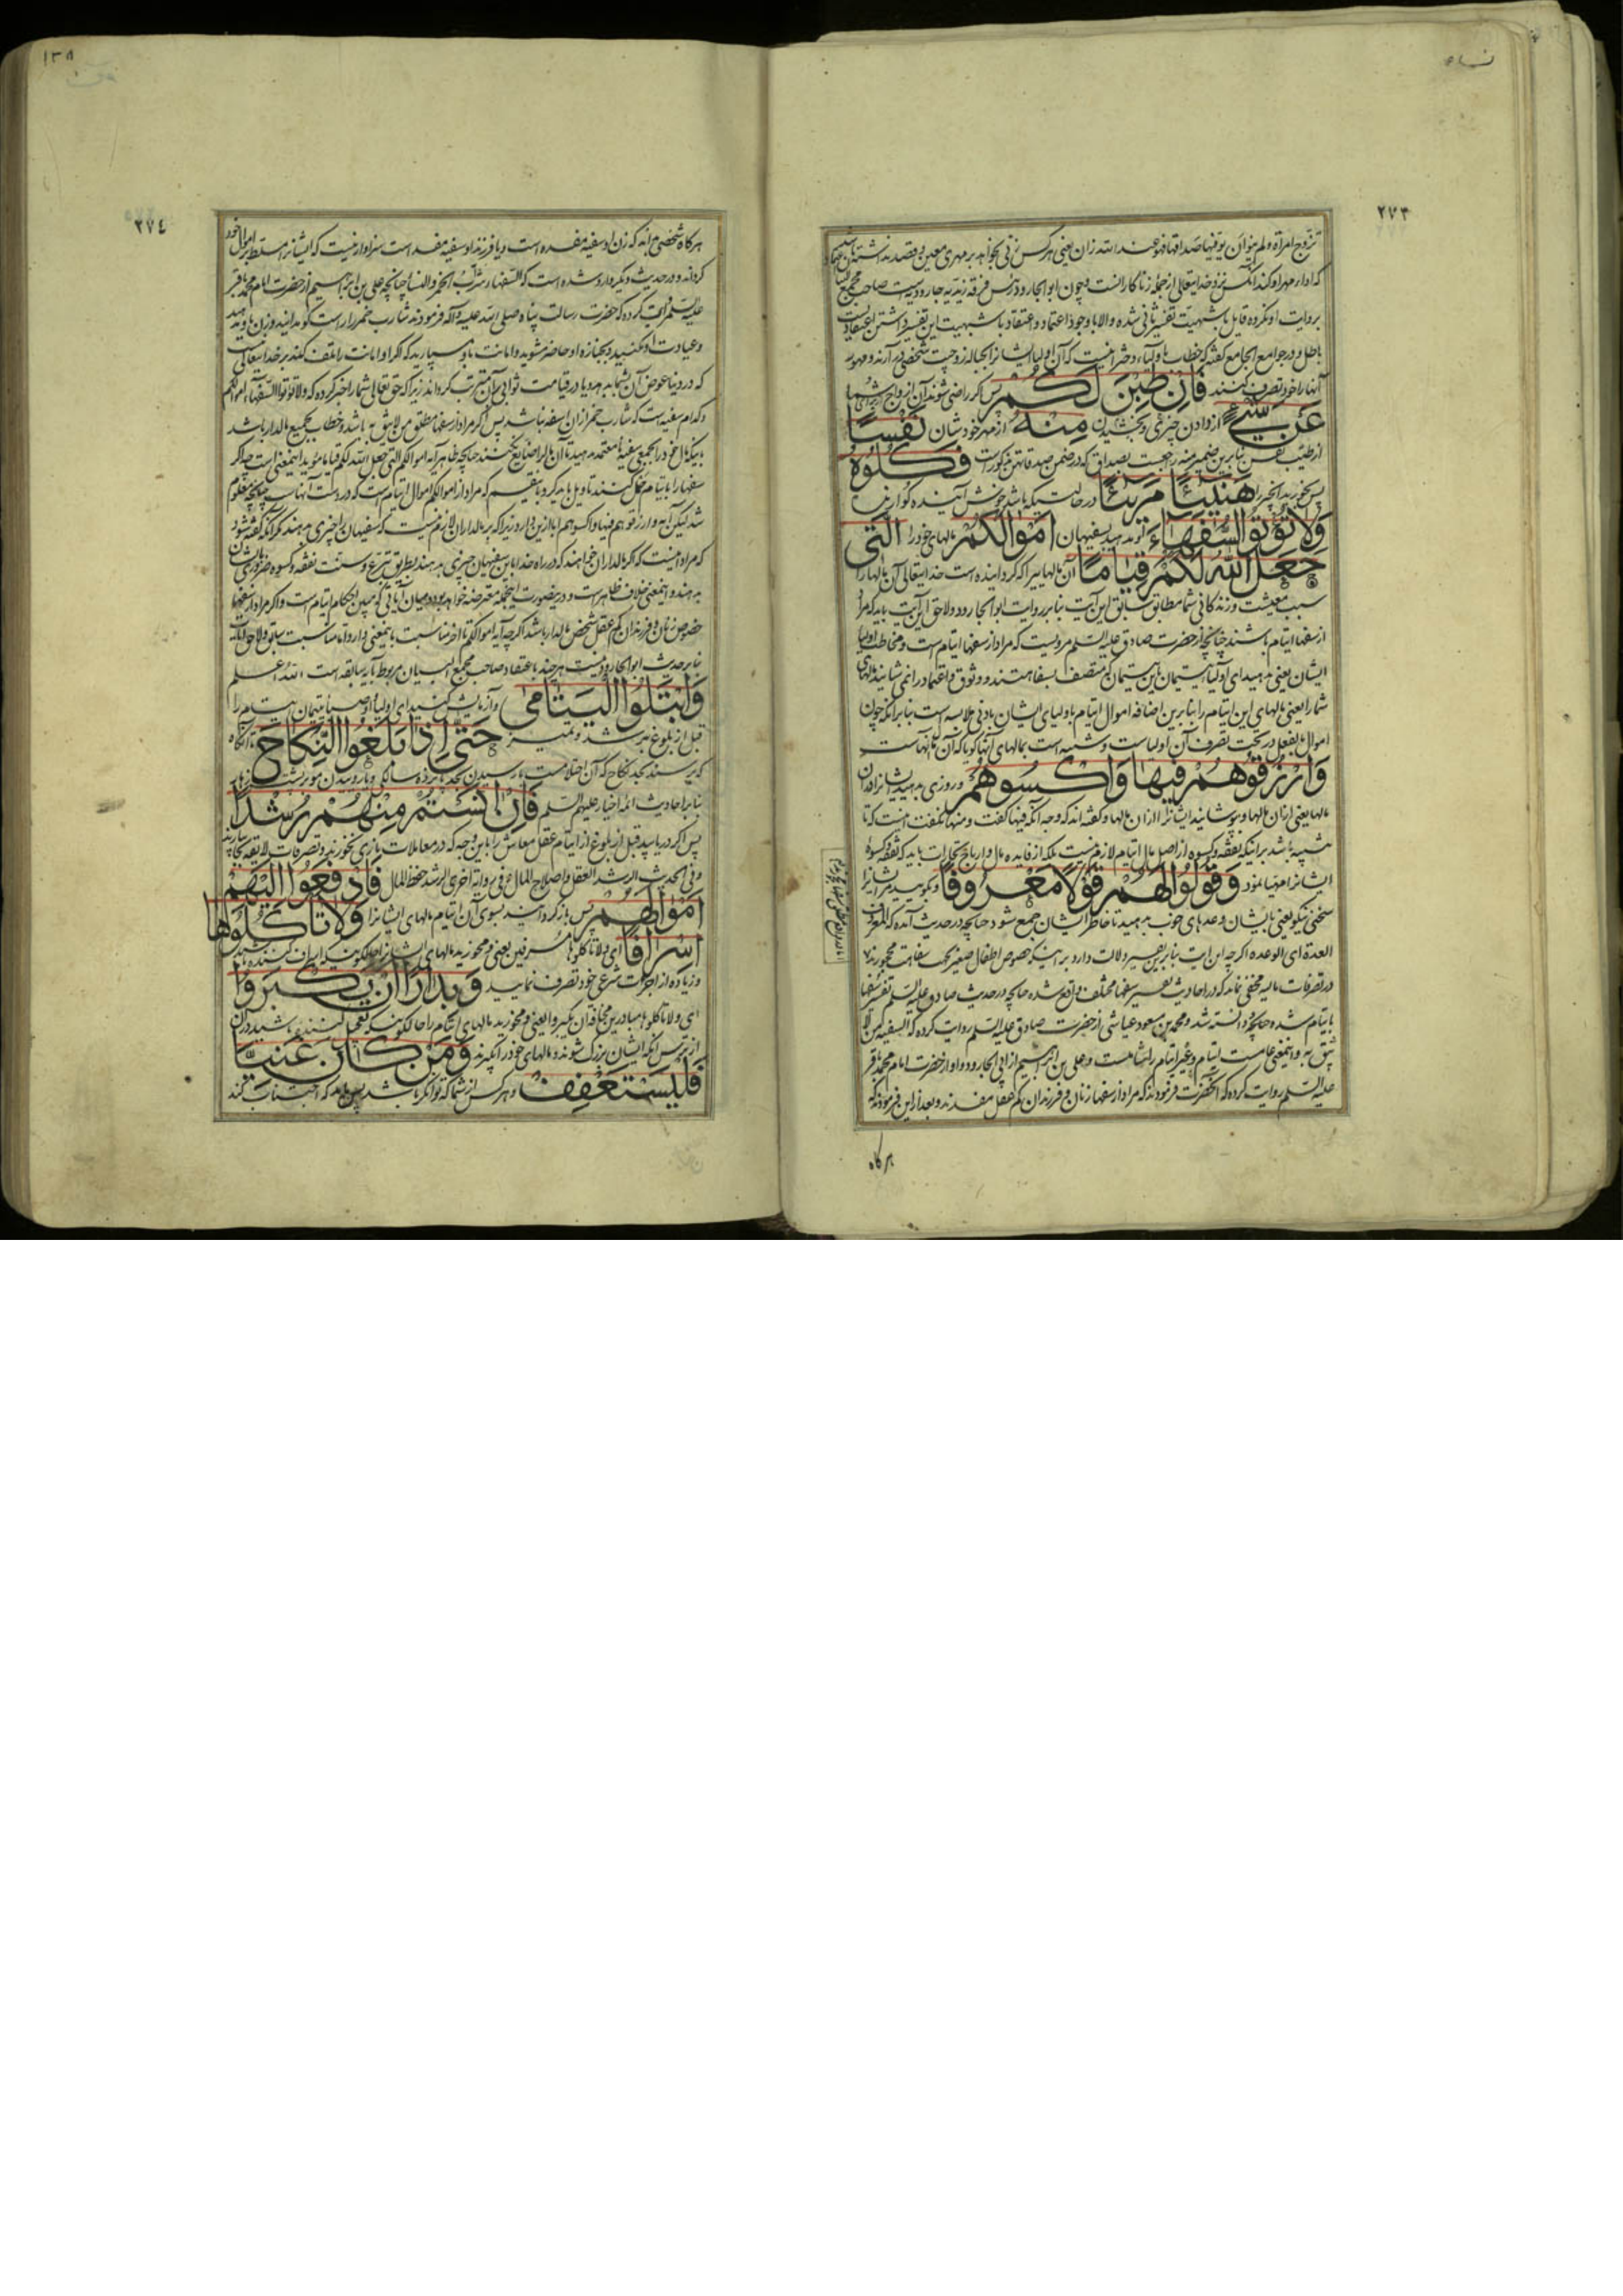 نساء
٢٧٣
تزوج امراة ولم ینوان یوفیها صداقها فهو عند الله زان یعنی هر کس زنی بخواهد بر مهری معین و قصد نداشته باشد
که ادا مهر او کند آنکس نزد خدایتعالی از جملهٔ زناکارانست و چون ابو الجارود رئیس فرقه زیدیه جارودیه است صاحب مجمع البیان
بروایت او نکرده قایل باشبهیت تفسیر ثانی شده و الا با وجود اعتماد و اعتقاد باشبهیت این تفسیر داشتن اعتقادیست
باطل و در جوامع الجامع گفته که خطاب باولیاء دختر انیست که آن اولیا ایشانرا بحباله زوجیت شخصی در آرند و مهور
آنها را خود تصرف کنند فَاِنْ طِبْنَ لَکُمْ پس اگر راضی شوند آن ازواج برای شما
عَنْ شَیْءٍ از دادن چیزی و بخشیدن مِنْهُ از مهر خودشان نَفْسًا
از طیب نفس بنابرین ضمیر منه راجعست بصداق که در ضمن صدقاتهن مذکورات فَکُلُوهُ
پس بخورید آنچیز را هَنِیئًا مَرِیئًا در حالتیکه باشد خوش آینده گوارنده
وَلا تُؤْتُوا السُّفَهَاءَ و ندهید بسفیهان اَمْوَالَکُمْ مالهای خود را الَّتِی
جَعَلَ اللّٰهُ لَکُمْ قِیَامًا آن مالهاییرا که گردانیده است خدایتعالی آن مالها را
سبب معیشت و زندگانی شما مطابق سابق این آیت بنابر روایت ابو الجارود و لاحق این آیت باید که مراد
از سفها ایتام باشند چنانچه از حضرت صادق علیه السلم مرویست که مراد از سفها ایتام ست و مخاطب اولیا
ایشان یعنی مدهید ای اولیاء یتیمان باین یتیمان که متصف بسفاهتند و وثوق و اعتماد را نمی شایند مالهای
شما را یعنی مالهای این ایتام را بنابرین اضافه اموال ایتام باولیای ایشان بادنی ملابسه است بنابر آنکه چون
اموال بالفعل در تحت تصرف آن اولیاست و شبیه است بمالهای آنها گویا که آن مال آنهاست
وَارْزُقُوهُمْ فِیهَا وَاکْسُوهُمْ و روزی بدهید ایشانرا در آن
مالها یعنی از آن مالها و بپوشانید ایشانرا از آن مالها و گفته اند که وجه آنکه فیها گفت و منها نگفت اینست که تا
تنبیه باشد بر اینکه نفقه و کسوه از اصل مال ایتام لازم نیست بلکه از فایده مال و ارباح تجارات باید که نفقه و کسوه
ایشانرا مهیا نمود وَقُولُوا لَهُمْ قَوْلًا مَعْرُوفًا و بگویید مر ایشانرا
سخنی نیکو یعنی بایشان وعدهای خوب بدهید تا خاطر ایشان جمع شود چنانچه در حدیث آمده که المعروف
العدة ای الوعده اگرچه این ایت بنابرین تفسیر دلالت دارد بر اینکه بخصوص اطفال صغیر بجهت سفاهت محجورند
در تصرفات مالیه مخفی نماند که در احادیث تفسیر سفها مختلف واقع شده چنانچه در حدیث صادق علیه السلم تفسیر سفها
بایتام شده چنانکه دانسته شد و محمد بن مسعود عیاشی از حضرت صادق علیه السلم روایت کرده که السفیه من لا
یثق به و اینمعنی عامست ایتام و غیر ایتام را شاملست و علی بن ابراهیم از ابی الجارود و او از حضرت امام محمد باقر
علیه السلم روایت کرده که آنحضرت فرمودند که مراد از سفها زنان و فرزندان کم عقل مفسدند و بعد از این فرمودند که
هرگاه
١٣٨
٢٧٤
هرگاه شخصی بداند که زن او سفیه مفسده است و یا فرزند او سفیه مفسد است سزاوار نیست که ایشانرا مسلط بر اموال خود
گرداند و در حدیث دیگر وارد شده است که السفهاء شارب الخمر و النسا چنانچه علی بن ابراهیم از حضرت امام محمد باقر
علیه السلم روایت کرده که حضرت رسالت پناه صلی الله علیه و آله فرمودند شارب خمر را راست گو مدانید و زن باو ندهید
و عیادت او نکنید و بجنازه او حاضر مشوید و امانت باو مسپارید که اگر او امانت را تلف کند بر خدا نیست
که در دنیا عوض آن بشما بدهد و یا در قیامت ثوابی بر آن مترتب گرداند زیرا که حق تعالی شما را خبر کرده که ولا تؤتوا السفهاء اموالکم
و کدام سفیه است که شارب خمر از آن اسفه نباشد پس اگر مراد از سفها مطلق من لا یثق به باشد و خطاب بجمیع مالدار باشد
بایکمال خود را بجمیع سفیه نامعتمد مدهید تا آن مال را ضایع نکنند چنانچه ظاهر آیه اموالکم التی جعل الله لکم قیاما مؤید اینمعنی است و اگر
سفها را بایتام حمل کنند تاویل باید کرد باینقسم که مراد از اموالکم اموال ایتام است که در دست آنهاست چنانچه معلوم
شد لیکن آیه وارزقوهم فیها واکسوهم ابا ازین دارد زیرا که بر مالداران لازم نیست که سفیهان را چیزی بدهند مگر آنکه گفته شود
که مراد اینست که اگر مالداران خواهند که در راه خدا باین سفیهان چیزی بدهند بطریق تبرع و سنت نفقه و کسوه ضروری ایشان
بدهند و اینمعنی خلاف ظاهر است و درینصورت اینجمله معترضه خواهد بود در میان آیاتی که مبین احکام ایتام است و اگر مراد از سفها
خصوص زنان و فرزندان کم عقل شخص مالدار باشد اگرچه آیه اموالکم تا آخر مناسبت باینمعنی دارد اما مناسبت سابق و لاحق آیات
بنابر حدیث ابو الجارود نیست هرچند باعتقاد صاحب مجمع البیان مربوط بآیه سابقه است و الله اعلم
وَابْتَلُوا الْیَتَامٰی و آزمایش کنید ای اولیاء و اوصیاء یتیمان ایتام را
قبل از بلوغ برشد و تمیز حَتّٰی اِذَا بَلَغُوا النِّکَاحَ تا آنگاه
که برسند بحد نکاح که آن احتلامست یا رسیدن بحد پانزده سالگی و یا روییدن موی پشت زهار
بنابر احادیث ائمه اخیار علیهم السلم فَاِنْ اٰنَسْتُمْ مِنْهُمْ رُشْدًا
پس اگر دریابید قبل از بلوغ از ایتام عقل معاش را باین وجه که در معاملات بازی نخورند و تصرفات لایقه بکار برند
و فی الحدیث الرشد العقل و اصلاح المال و فی روایة اخری الرشد حفظ المال فَادْفَعُوا اِلَیْهِمْ
اَمْوَالَهُمْ پس باز گردانید بسوی آن ایتام مالهای ایشانرا وَلا تَاْکُلُوهَا
اِسْرَافًا ای ولا تاکلوها مسرفین یعنی و مخورید مالهای ایشانرا حالکونیکه اسراف کننده باشید
و زیاده از اجرات شرعی خود تصرف نمایید وَبِدَارًا اَنْ یَکْبَرُوا
ای ولا تاکلوها مبادرین مخافة ان یکبروا یعنی و مخورید مالهای ایتام را حالکونیکه تعجیل کننده باشید در آن
از ترس آنکه ایشان بزرگ شوند و مالهای خود را گیرند وَمَنْ کَانَ غَنِیًّا
فَلْیَسْتَعْفِفْ و هر کس از شما که توانگر باشد پس باید که اجتناب کند